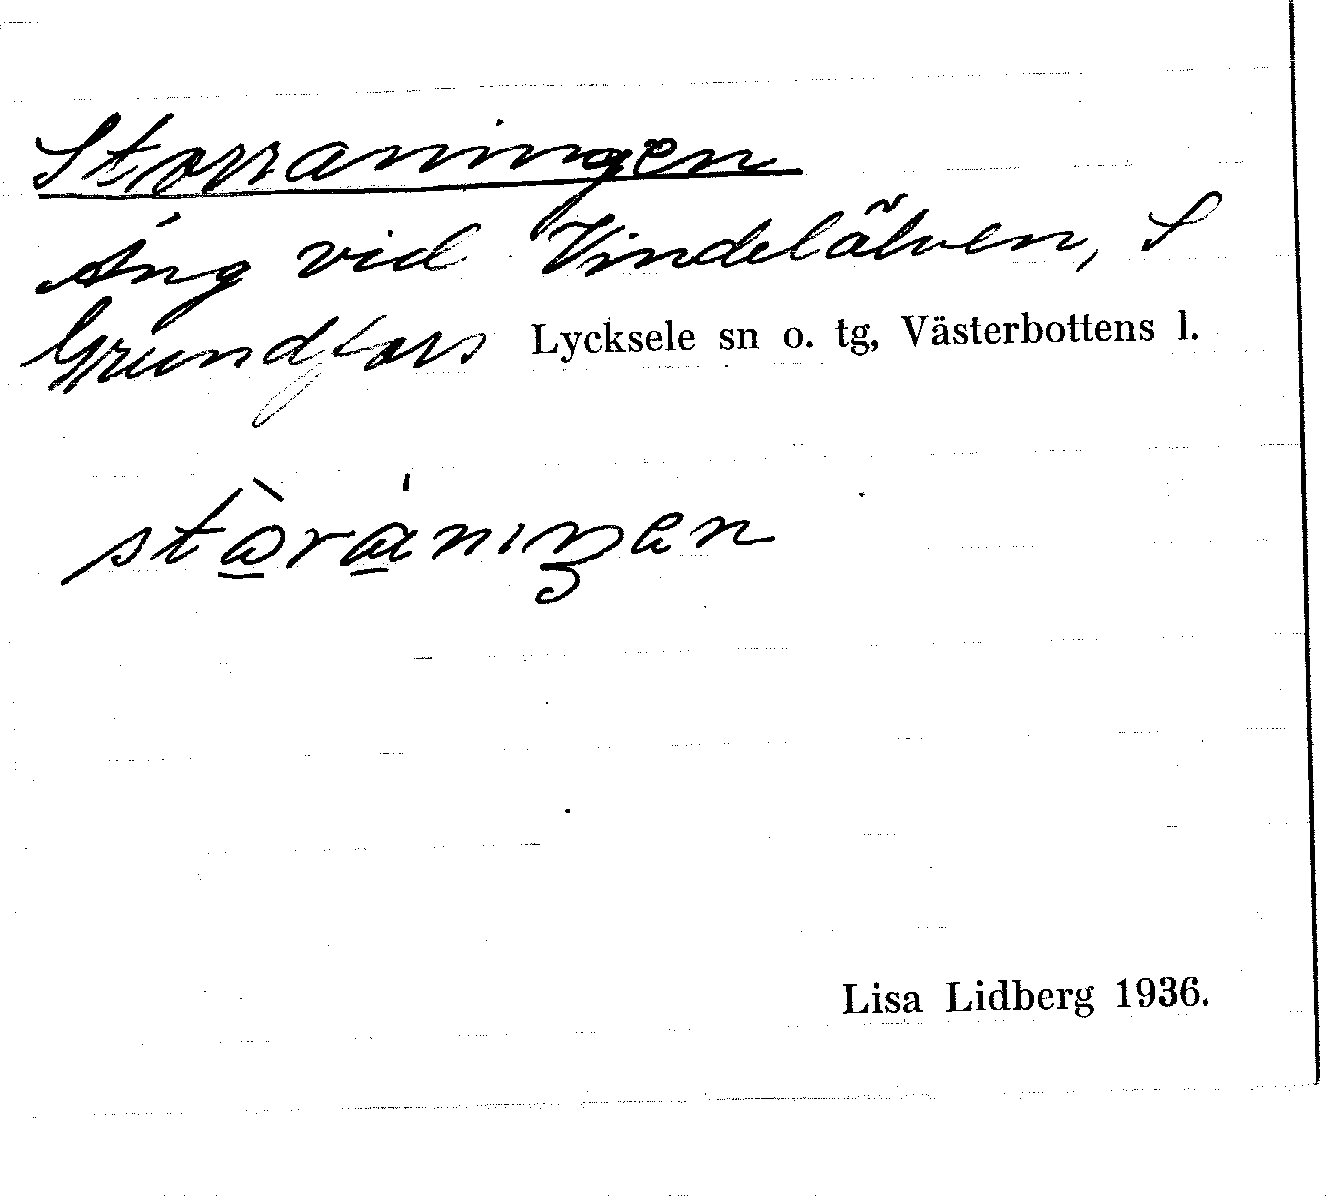 Storraningen
Äng vid Vindelälven, S
Grundfors Lycksele sn o. tg, Västerbottens l.
Lisa Lidberg 1936.